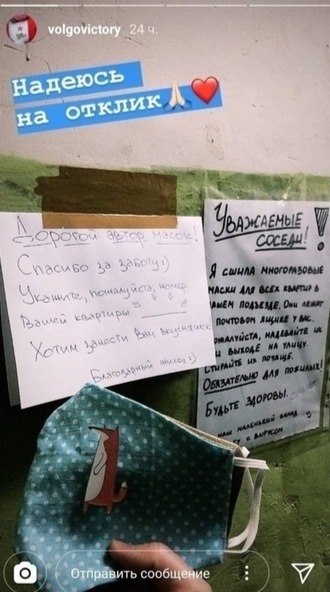 volgovictory 24 ч.
Надеюсь
на отклик🙏🏻❤️
Дорогой автор масок!
Спасибо за заботу:)
Укажите, пожалуйста, номер
Вашей квартиры
Хотим занести Вам вкусняшек
Благодарный жилец:)
Уважаемые
соседи!
Я сшила многоразовые
маски для всех квартир в
нашем подъезде. Они лежат
почтовом ящике у вас.
пожалуйста, надевайте их
и выходе на улицу.
Стирайте их почаще.
Обязательно для пожилых!
Будьте здоровы.
маленький вклад
с вирусом
Отправить сообщение